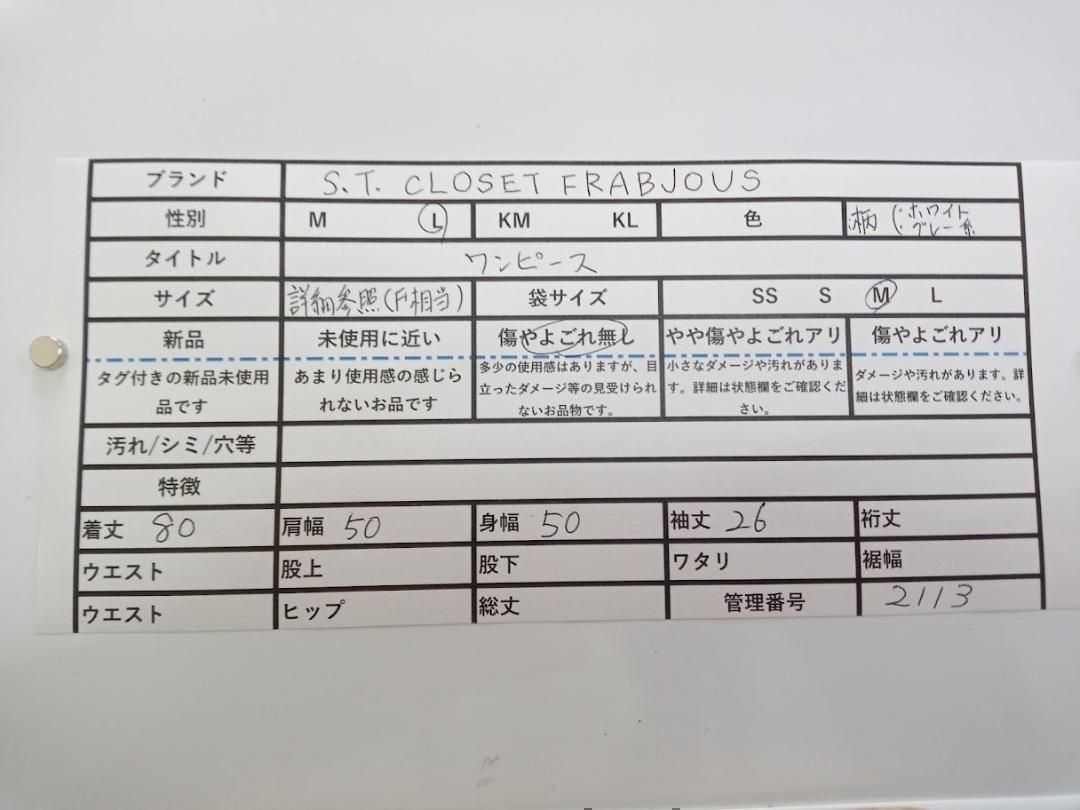 ブランド S.T. CLOSET FRABJOUS
性別 M L KM KL 色 柄(:ホワイト
:グレー系
タイトル ワンピース
サイズ 詳細参照(F相当) 袋サイズ SS S M L
新品 未使用に近い 傷やよごれ無し やや傷やよごれアリ 傷やよごれアリ
タグ付きの新品未使用
品です
あまり使用感の感じら
れないお品です
多少の使用感はありますが、目
立ったダメージ等の見受けられ
ないお品物です。
小さなダメージや汚れがありま
す。詳細は状態欄をご確認くだ
さい。
ダメージや汚れがあります。詳
細は状態欄をご確認ください。
汚れ/シミ/穴等
特徴
着丈 80 肩幅 50 身幅 50 袖丈 26 裄丈
ウエスト 股上 股下 ワタリ 裾幅
ウエスト ヒップ 総丈 管理番号 2113